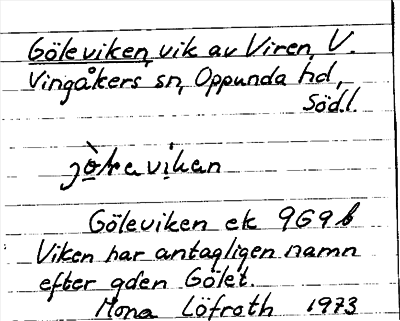 Göleviken, vik av Viren, V.
Vingåkers sn, Oppunda hd,
Södl.
Göleviken ek 9G9b
Viken har antagligen namn
efter gden Gölet.
Mona Löfroth 1973